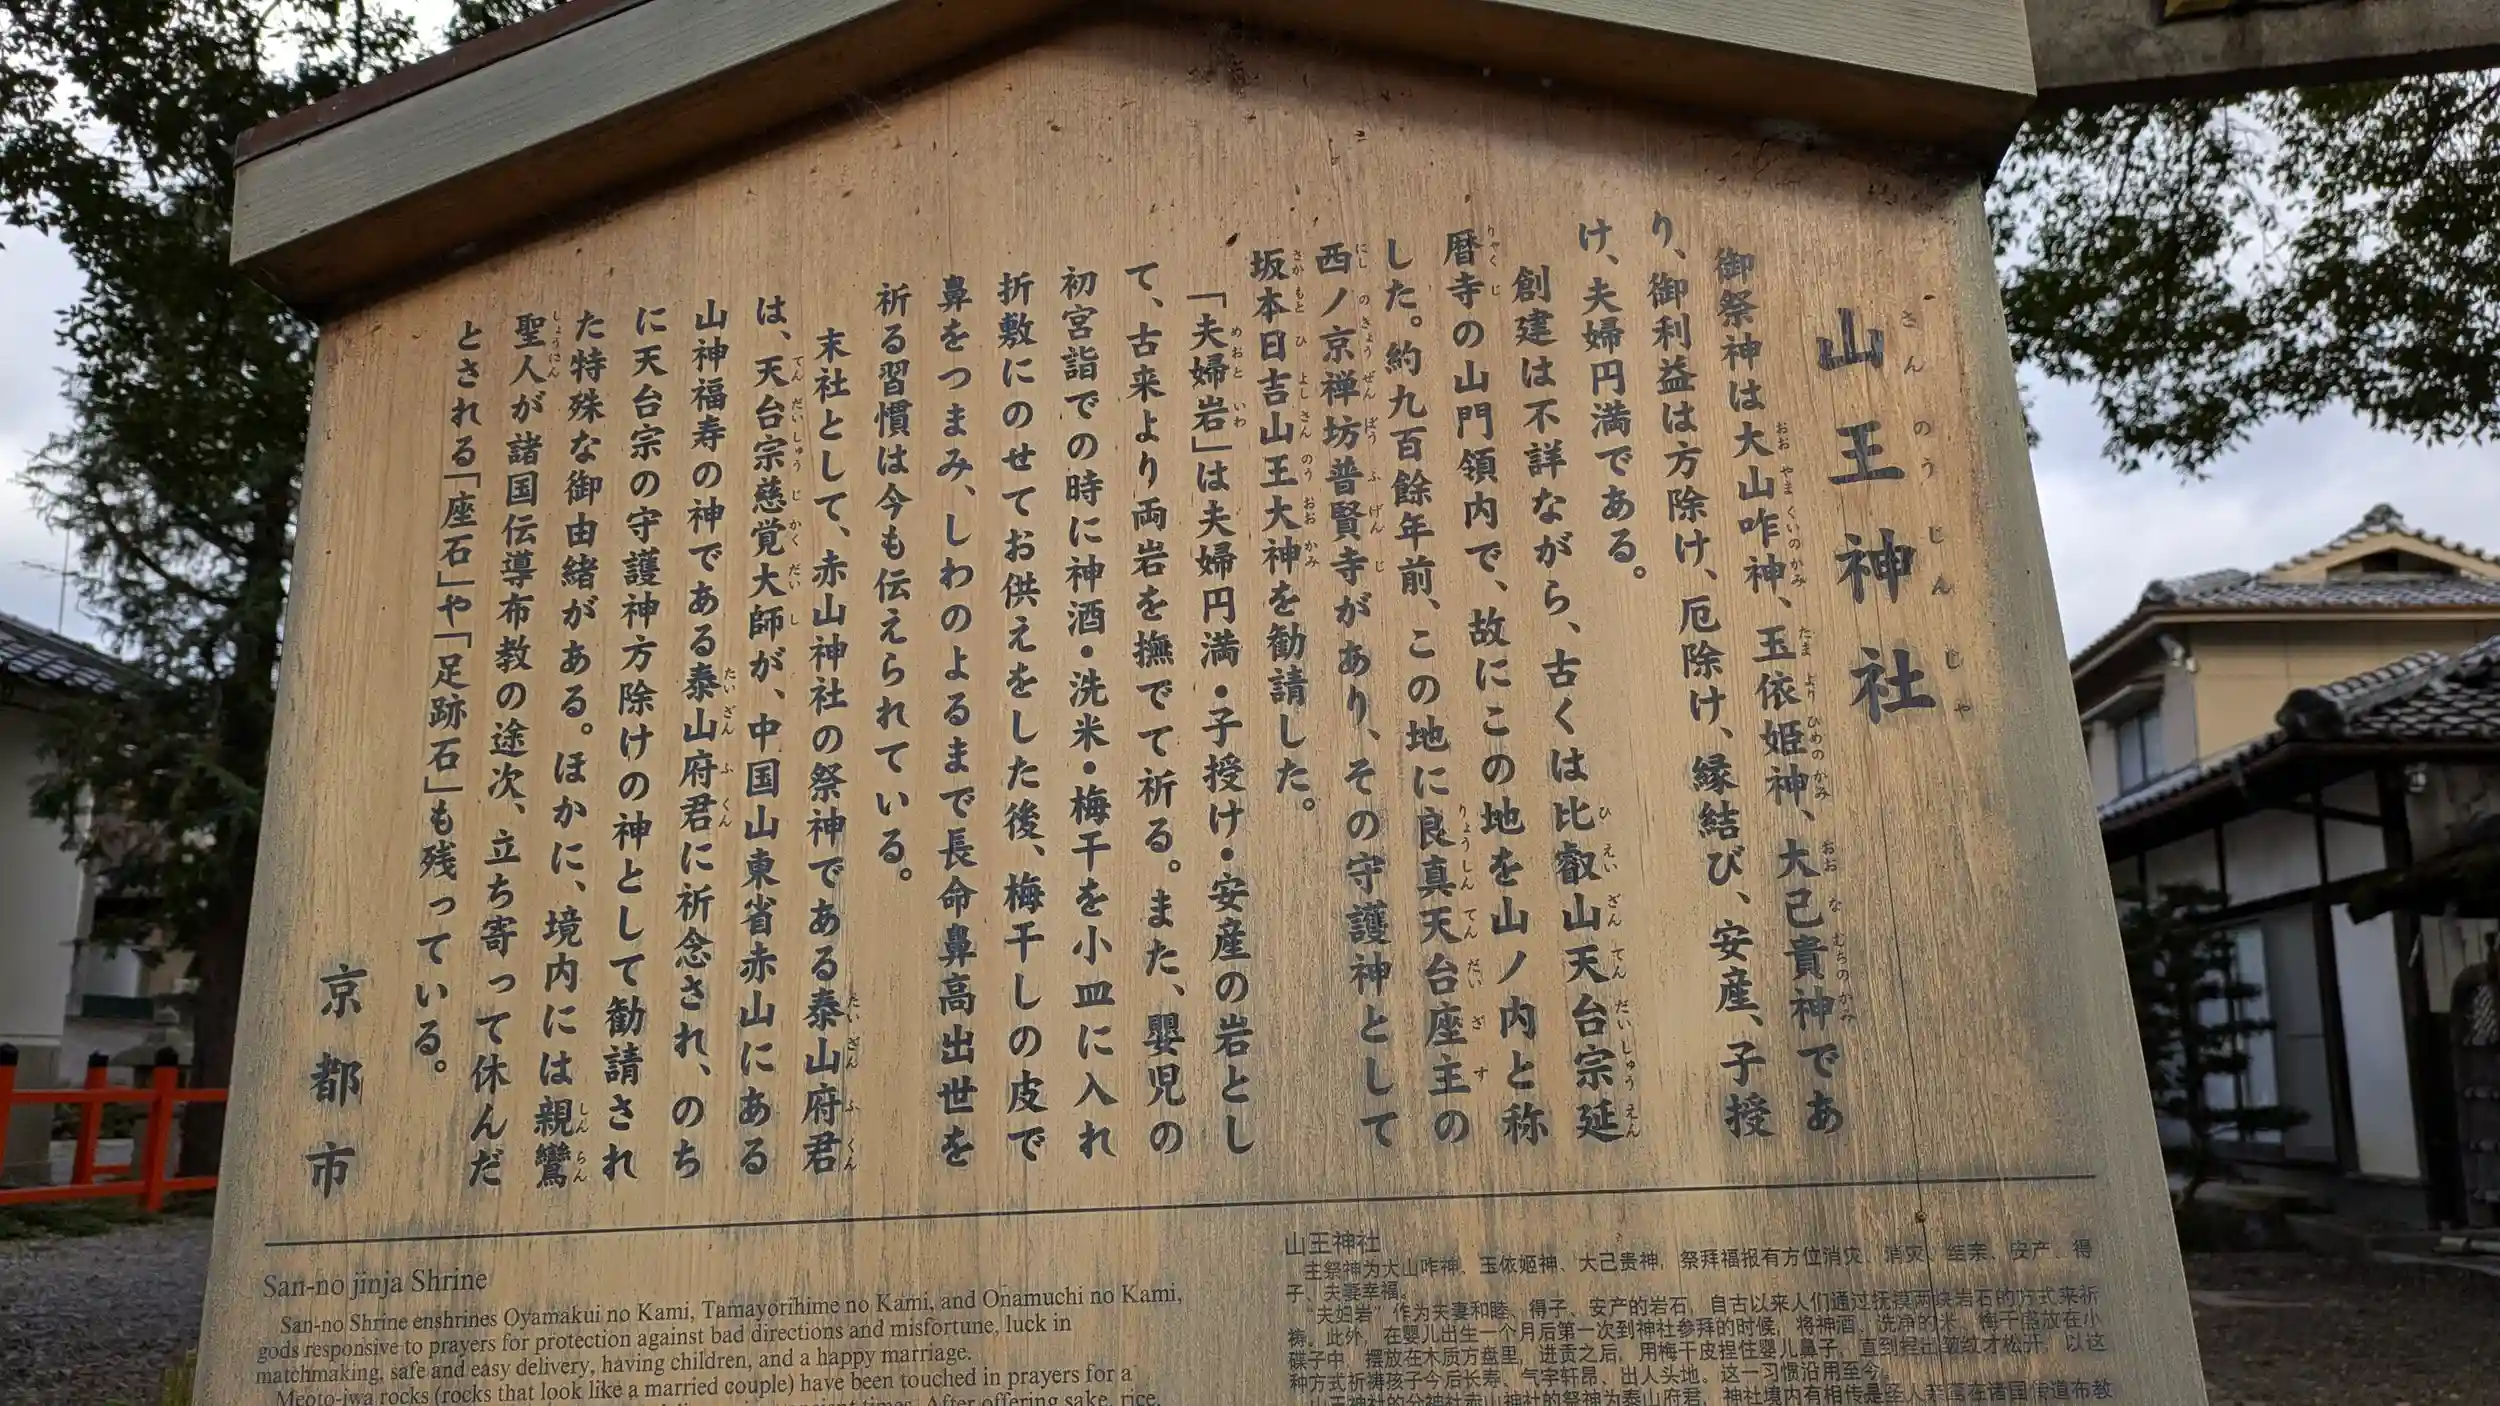 山王神社
さんのうじんじゃ
御祭神は大山咋神、玉依姫神、大己貴神であ
り、御利益は方除け、厄除け、縁結び、安産、子授
け、夫婦円満である。
創建は不詳ながら、古くは比叡山天台宗延
暦寺の山門領内で、故にこの地を山ノ内と称
した。約九百餘年前、この地に良真天台座主の
西ノ京禅坊普賢寺があり、その守護神として
坂本日吉山王大神を勧請した。
「夫婦岩」は夫婦円満・子授け・安産の岩とし
て、古来より両岩を撫でて祈る。また、嬰児の
初宮詣での時に神酒・洗米・梅干を小皿に入れ
折敷にのせてお供えをした後、梅干しの皮で
鼻をつまみ、しわのよるまで長命鼻高出世を
祈る習慣は今も伝えられている。
末社として、赤山神社の祭神である泰山府君
は、天台宗慈覚大師が、中国山東省赤山にある
山神福寿の神である泰山府君に祈念され、のち
に天台宗の守護神方除けの神として勧請され
た特殊な御由緒がある。ほかに、境内には親鸞
聖人が諸国伝導布教の途次、立ち寄って休んだ
とされる「座石」や「足跡石」も残っている。
京都市
San-no jinja Shrine
San-no Shrine enshrines Oyamakui no Kami, Tamayorihime no Kami, and Onamuchi no Kami,
gods responsive to prayers for protection against bad directions and misfortune, luck in
matchmaking, safe and easy delivery, having children, and a happy marriage.
Meoto-iwa rocks (rocks that look like a married couple) have been touched in prayers for a
ancient times. After offering sake, rice,
山王神社
主祭神为大山咋神、玉依姬神、大己贵神，祭拜福报有方位消灾、消灾、结亲、安产、得
子、夫妻幸福。
“夫妇岩”作为夫妻和睦、得子、安产的岩石，自古以来人们通过抚摸两块岩石的方式来祈
祷。此外，在婴儿出生一个月后第一次到神社参拜的时候，将神酒、洗净的米、梅干盛放在小
碟子中，摆放在木质方盘里，进贡之后，用梅干皮捏住婴儿鼻子，直到捏出皱纹才松开，以这
种方式祈祷孩子今后长寿、气宇轩昂、出人头地。这一习惯沿用至今。
山王神社的分神社赤山神社的祭神为泰山府君，神社境内有相传是圣人亲鸾在诸国传道布教